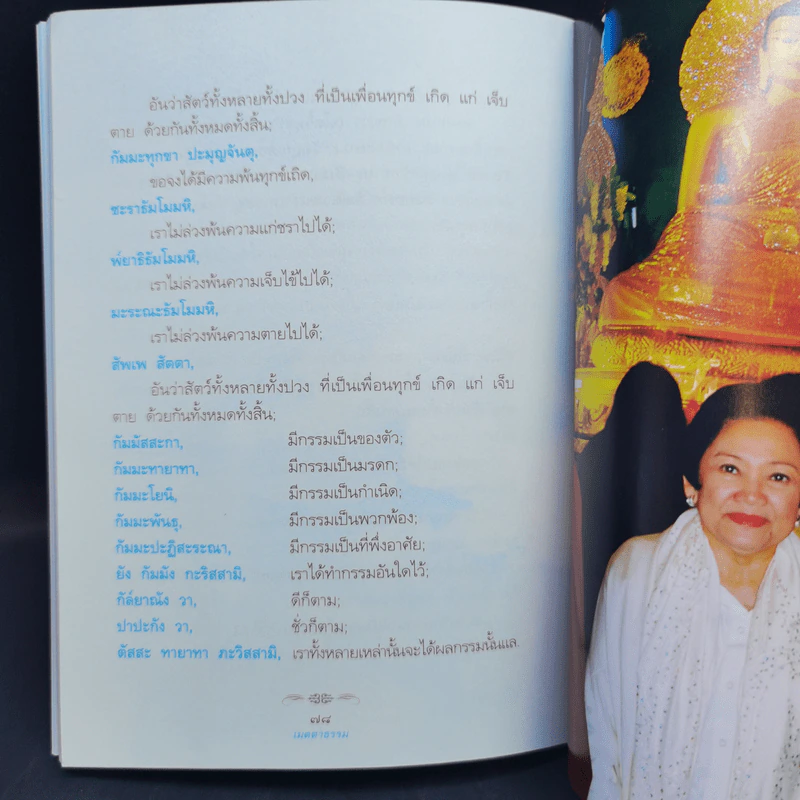 อันว่าสัตว์ทั้งหลายทั้งปวง ที่เป็นเพื่อนทุกข์ เกิด แก่ เจ็บ
ตาย ด้วยกันทั้งหมดทั้งสิ้น;
กัมมะทุกขา ปะมุญจันตุ,
ขอจงได้มีความพ้นทุกข์เถิด,
ชะราธัมโมมหิ,
เราไม่ล่วงพ้นความแก่ชราไปได้;
พ๎ยาธิธัมโมมหิ,
เราไม่ล่วงพ้นความเจ็บไข้ไปได้;
มะระณะธัมโมมหิ,
เราไม่ล่วงพ้นความตายไปได้;
สัพเพ สัตตา,
อันว่าสัตว์ทั้งหลายทั้งปวง ที่เป็นเพื่อนทุกข์ เกิด แก่ เจ็บ
ตาย ด้วยกันทั้งหมดทั้งสิ้น;
กัมมัสสะกา, มีกรรมเป็นของตัว;
กัมมะทายาทา, มีกรรมเป็นมรดก;
กัมมะโยนิ, มีกรรมเป็นกำเนิด;
กัมมะพันธุ, มีกรรมเป็นพวกพ้อง;
กัมมะปะฏิสะระณา, มีกรรมเป็นที่พึ่งอาศัย;
ยัง กัมมัง กะริสสามิ, เราได้ทำกรรมอันใดไว้;
กัล๎ยาณัง วา, ดีก็ตาม;
ปาปะกัง วา, ชั่วก็ตาม;
ตัสสะ ทายาทา ภะวิสสามิ, เราทั้งหลายเหล่านั้นจะได้ผลกรรมนั้นแล.
๗๘
เมตตาธรรม